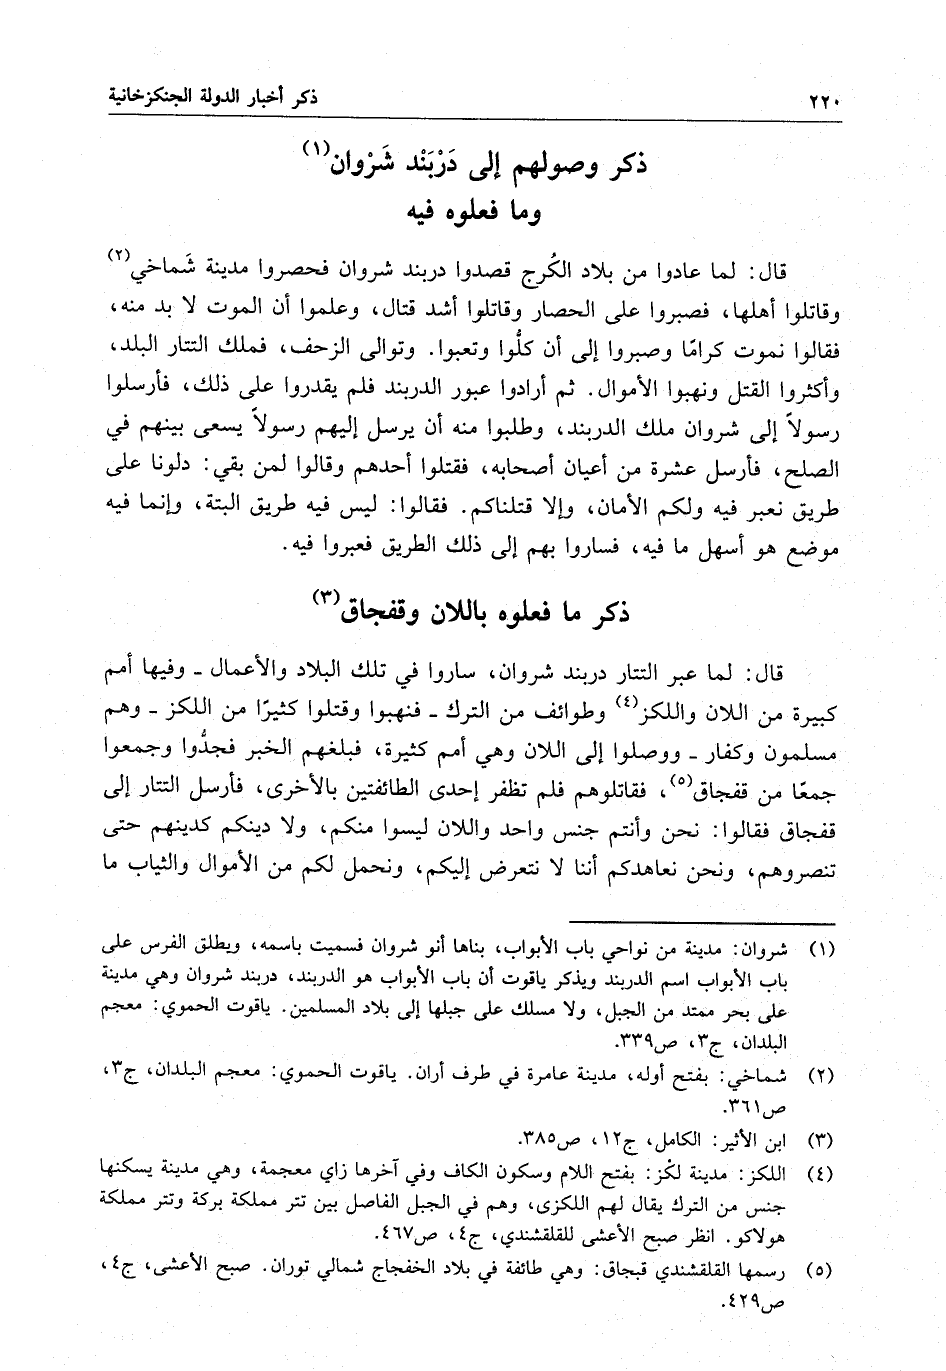 ٢٢٠ ذكر أخبار الدولة الجنكزخانية
ذكر وصولهم إلى دَرْبَنْد شَرْوان(١)
وما فعلوه فيه
قال: لما عادوا من بلاد الكُرج قصدوا دربند شروان فحصروا مدينة شَماخي(٢)
وقاتلوا أهلها، فصبروا على الحصار وقاتلوا أشد قتال، وعلموا أن الموت لا بد منه،
فقالوا نموت كرامًا وصبروا إلى أن كلُّوا وتعبوا. وتوالى الزحف، فملك التتار البلد،
وأكثروا القتل ونهبوا الأموال. ثم أرادوا عبور الدربند فلم يقدروا على ذلك، فأرسلوا
رسولاً إلى شروان ملك الدربند، وطلبوا منه أن يرسل إليهم رسولاً يسعى بينهم في
الصلح، فأرسل عشرة من أعيان أصحابه، فقتلوا أحدهم وقالوا لمن بقي: دلونا على
طريق نعبر فيه ولكم الأمان، وإلا قتلناكم. فقالوا: ليس فيه طريق البتة، وإنما فيه
موضع هو أسهل ما فيه، فساروا بهم إلى ذلك الطريق فعبروا فيه.
ذكر ما فعلوه باللان وقفجاق(٣)
قال: لما عبر التتار دربند شروان، ساروا في تلك البلاد والأعمال ـ وفيها أمم
كبيرة من اللان واللكز(٤) وطوائف من الترك ـ فنهبوا وقتلوا كثيرًا من اللكز ـ وهم
مسلمون وكفار ـ ووصلوا إلى اللان وهي أمم كثيرة، فبلغهم الخبر فجدُّوا وجمعوا
جمعًا من قفجاق(٥)، فقاتلوهم فلم تظفر إحدى الطائفتين بالأخرى، فأرسل التتار إلى
قفجاق فقالوا: نحن وأنتم جنس واحد واللان ليسوا منكم، ولا دينكم كدينهم حتى
تنصروهم، ونحن نعاهدكم أننا لا نتعرض إليكم، ونحمل لكم من الأموال والثياب ما
(١) شروان: مدينة من نواحي باب الأبواب، بناها أنو شروان فسميت باسمه، ويطلق الفرس على
باب الأبواب اسم الدربند ويذكر ياقوت أن باب الأبواب هو الدربند، دربند شروان وهي مدينة
على بحر ممتد من الجبل، ولا مسلك على جبلها إلى بلاد المسلمين. ياقوت الحموي: معجم
البلدان، ج٣، ص٣٣٩.
(٢) شماخي: بفتح أوله، مدينة عامرة في طرف أران. ياقوت الحموي: معجم البلدان، ج٣،
ص٣٦١.
(٣) ابن الأثير: الكامل، ج١٢، ص٣٨٥.
(٤) اللكز: مدينة لكْز: بفتح اللام وسكون الكاف وفي آخرها زاي معجمة، وهي مدينة يسكنها
جنس من الترك يقال لهم اللكزى، وهم في الجبل الفاصل بين تتر مملكة بركة وتتر مملكة
هولاكو. انظر صبح الأعشى للقلقشندي، ج٤، ص٤٦٧.
(٥) رسمها القلقشندي قبجاق: وهي طائفة في بلاد الخفجاج شمالي توران. صبح الأعشى، ج٤،
ص٤٢٩.